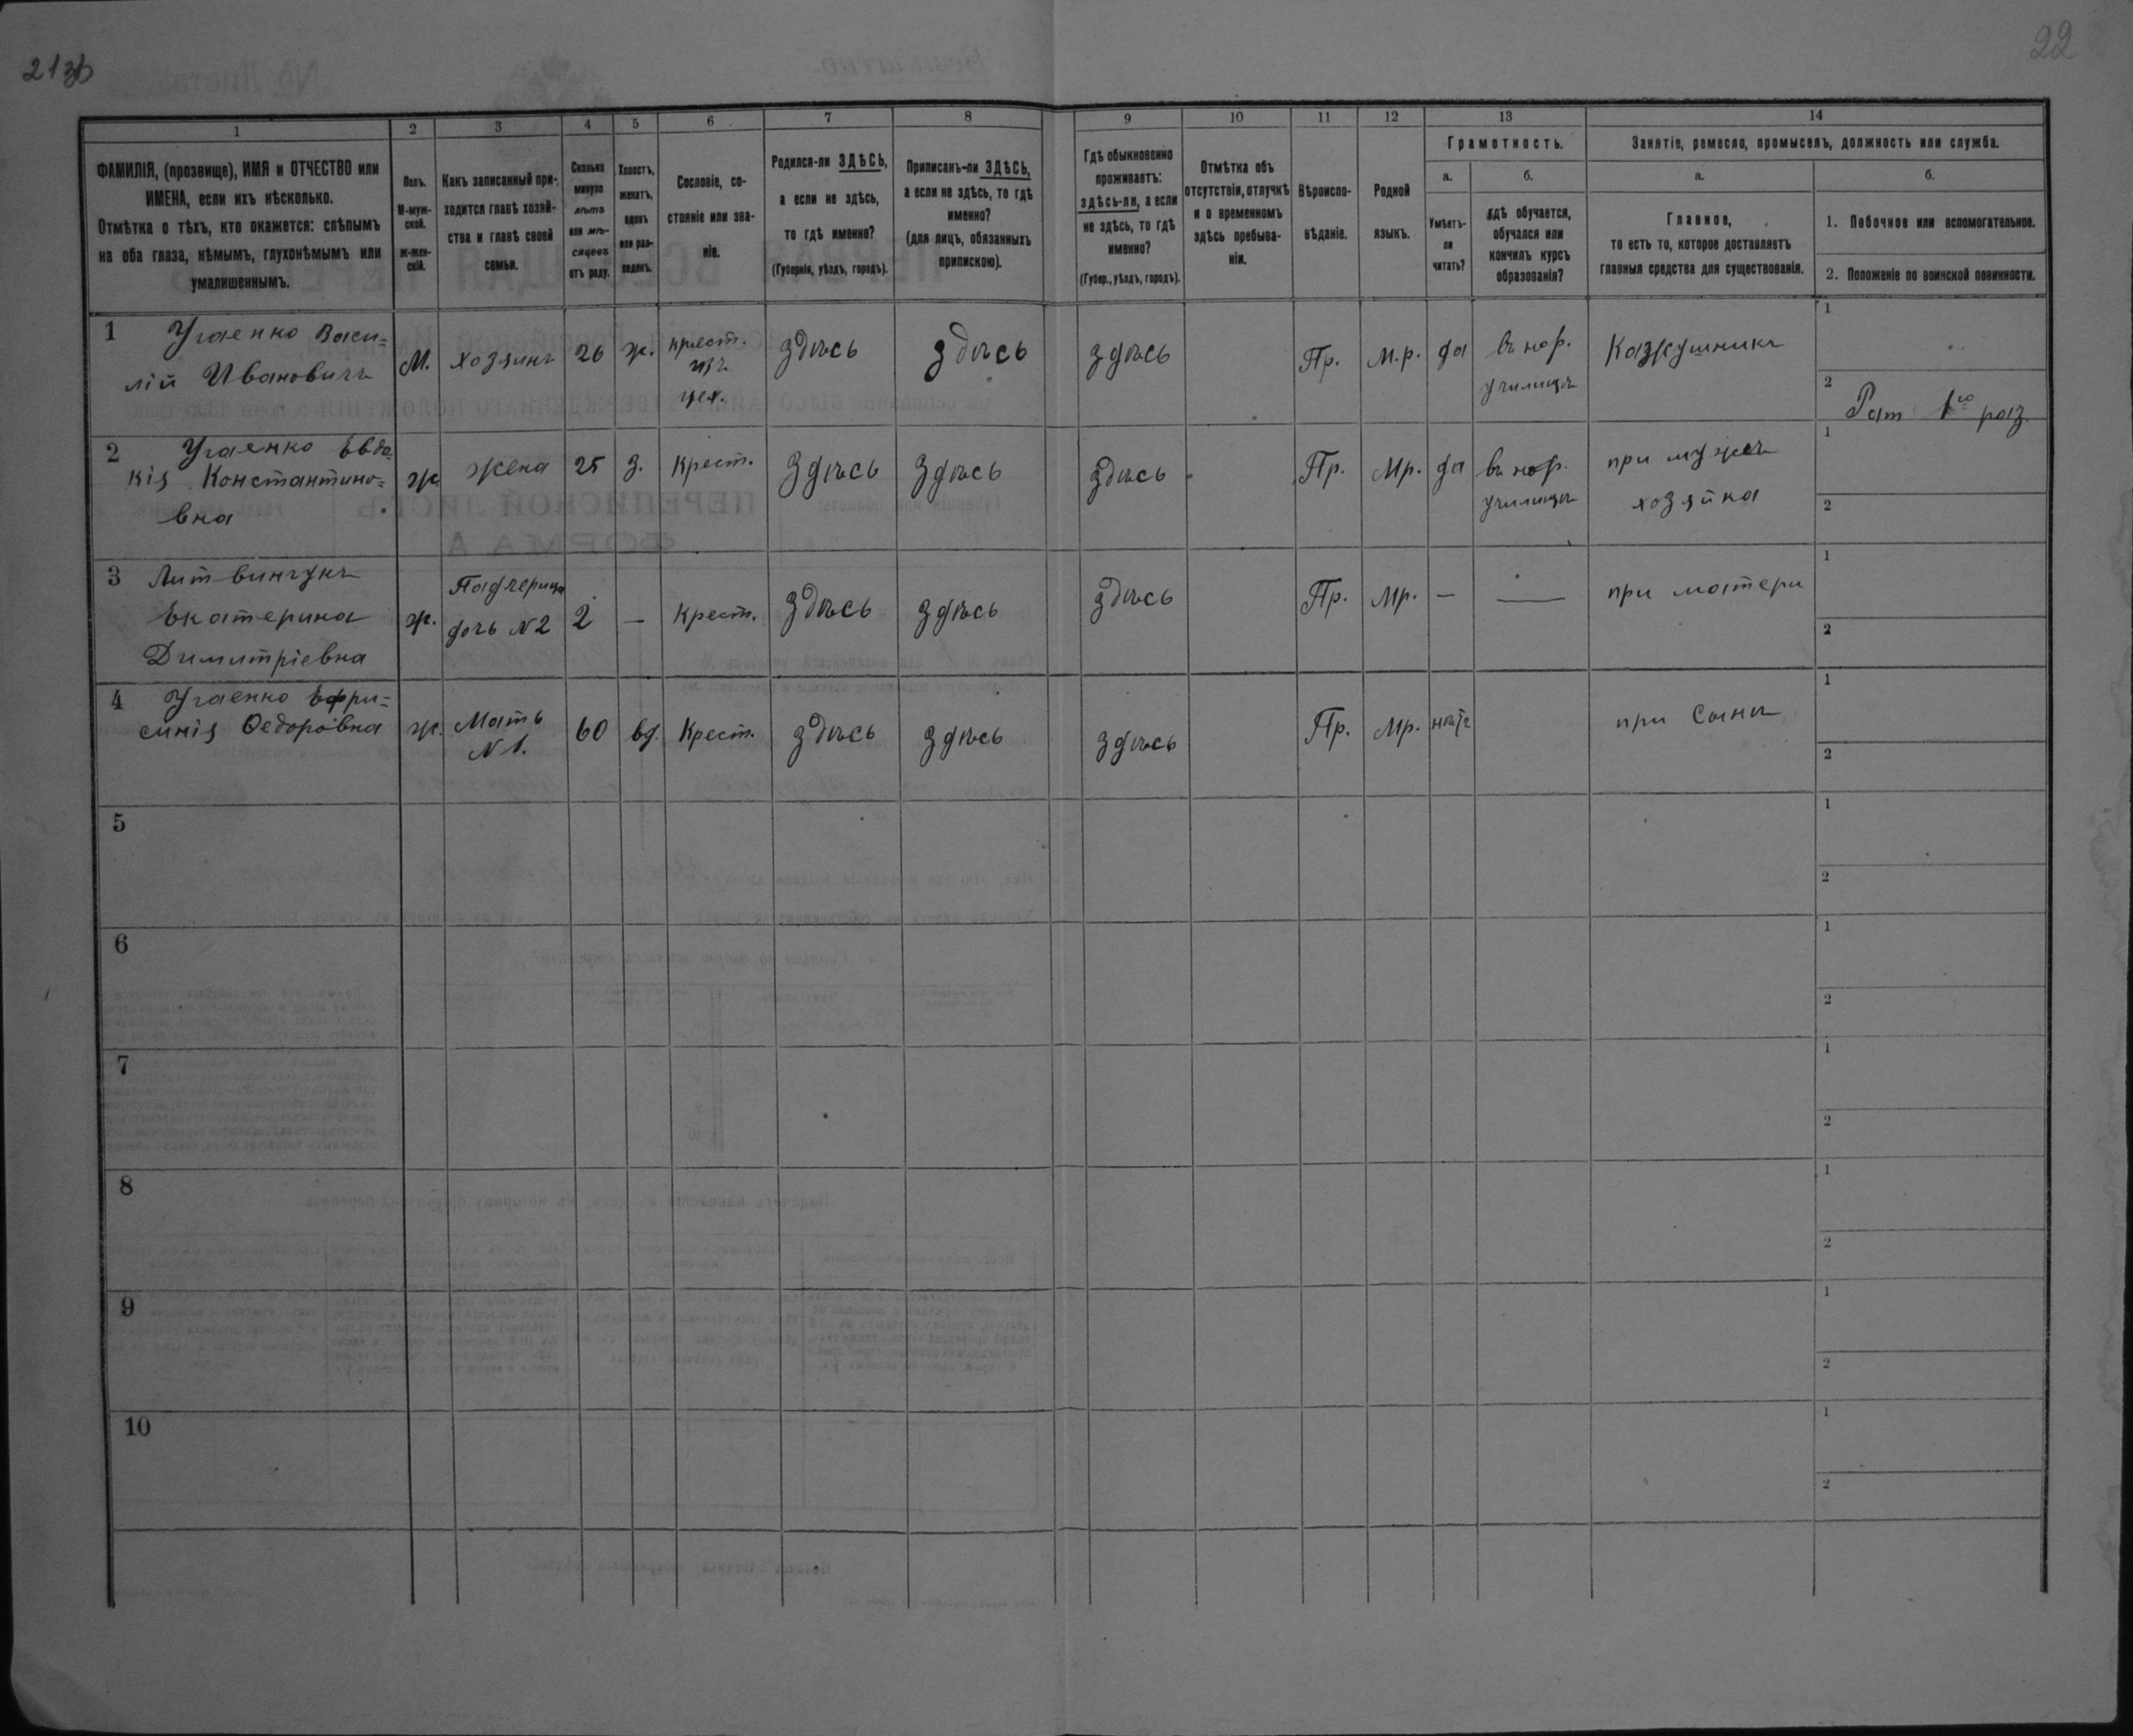 213b
22
1
2
3
4
5
6
7
8
9
10
11
12
13
14
ФАМИЛІЯ, (прозвище), ИМЯ и ОТЧЕСТВО или
ИМЕНА, если ихъ нѣсколько.
Отмѣтка о тѣхъ, кто окажется: слѣпымъ
на оба глаза, нѣмымъ, глухонѣмымъ или
умалишеннымъ.
Полъ.
М-муж-
ской.
Ж-жен-
скій.
Какъ записанный при-
ходится главѣ хозяй-
ства и главѣ своей
семьи.
Сколько
минуло
лѣтъ
или мѣ-
сяцевъ
отъ роду.
Холостъ,
женатъ,
вдовъ
или раз-
веденъ.
Сословіе, со-
стояніе или зва-
ніе.
Родился-ли ЗДѢСЬ,
а если не здѣсь,
то гдѣ именно?
(Губернія, уѣздъ, городъ).
Приписанъ-ли ЗДѢСЬ,
а если не здѣсь, то гдѣ
именно?
(для лицъ, обязанныхъ
припискою).
Гдѣ обыкновенно
проживаетъ:
здѣсь-ли, а если
не здѣсь, то гдѣ
именно?
(Губер., уѣздъ, городъ).
Отмѣтка объ
отсутствіи, отлучкѣ
и о временномъ
здѣсь пребыва-
ніи.
Вѣроиспо-
вѣданіе.
Родной
языкъ.
Грамотность.
а.
Умѣетъ-
ли
читать?
б.
гдѣ обучается,
обучался или
кончилъ курсъ
образованія?
Занятіе, ремесло, промыселъ, должность или служба.
а.
Главное,
то есть то, которое доставляетъ
главныя средства для существованія.
б.
1. Побочное или вспомогательное.
2. Положеніе по воинской повинности.
1 Угаенко Васи=
лій Ивановичъ
М.
хозяинъ
26
ж.
крест.
изъ
здѣсь
здѣсь
здѣсь
Пр.
М.р.
да
въ нар.
училищѣ
1
2
Рат 1го раз.
2 Угаенко Евдо
кія Константино=
вна
ж
жена
25
з.
Крест.
здѣсь
здѣсь
здѣсь
Пр.
Мр.
да
въ нар.
училищѣ
при мужѣ
хозяйка
1
2
3 Литвинчукъ
Екатерина
Димитріевна
ж.
Падчерица
дочь N2
2
—
Крест.
здѣсь
здѣсь
здѣсь
Пр.
Мр.
—
—
при матери
1
2
4 Угаенко Ефри=
синія Ѳедоровна
ж.
Мать
N 1.
60
вд.
Крест.
здѣсь
здѣсь
здѣсь
Пр.
Мр.
нѣтъ
при сынѣ
1
2
5
1
2
6
1
2
7
1
2
8
1
2
9
1
2
10
1
2